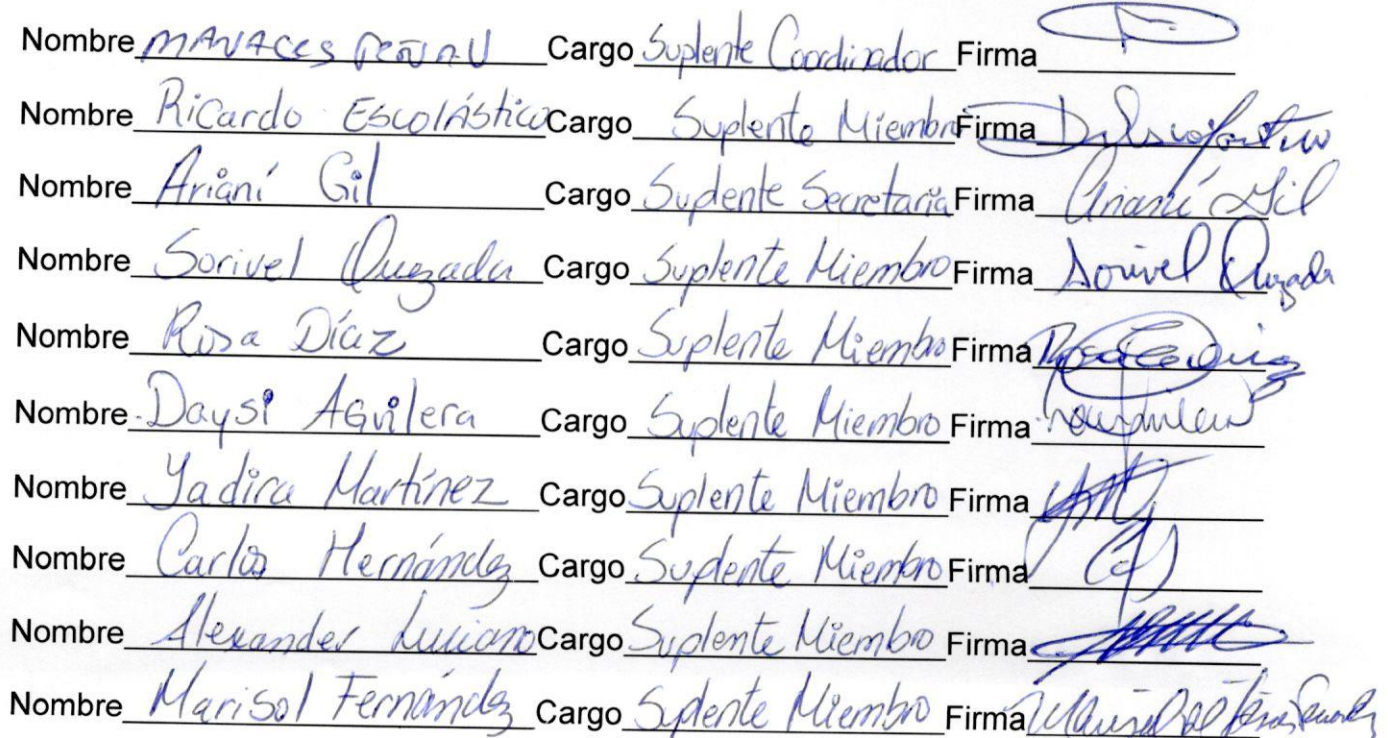 Nombre MANACES Cargo Suplente Coordinador Firma
Nombre Ricardo Escolástico Cargo Suplente Miembro Firma
Nombre Arianí Gil Cargo Suplente Secretaria Firma Arianí Gil
Nombre Sorivel Quezada Cargo Suplente Miembro Firma Sorivel Quezada
Nombre Rosa Díaz Cargo Suplente Miembro Firma
Nombre Daysi Aguilera Cargo Suplente Miembro Firma
Nombre Yadira Martínez Cargo Suplente Miembro Firma
Nombre Carlos Hernández Cargo Suplente Miembro Firma
Nombre Alexander Luciano Cargo Suplente Miembro Firma
Nombre Marisol Fernández Cargo Suplente Miembro Firma